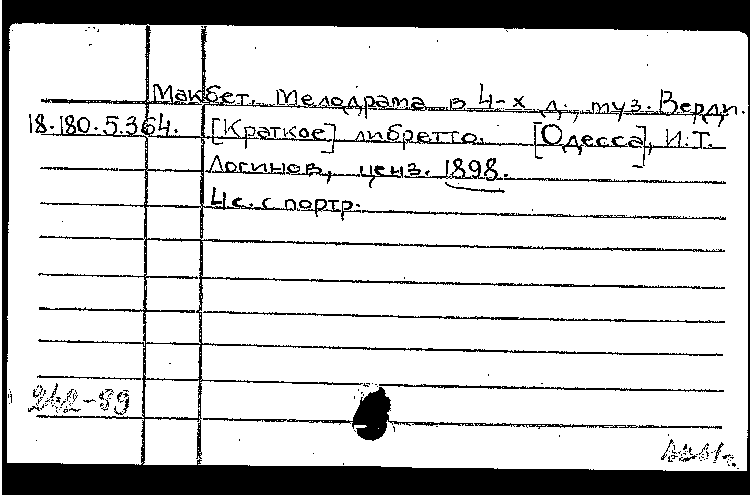 Макбет. Мелодрама в 4-х д., муз. Верди.
18.180.5.364. [Краткое] либретто. [Одесса], И.Т.
Логинов, ценз. 1898.
4 с. с портр.
242-89